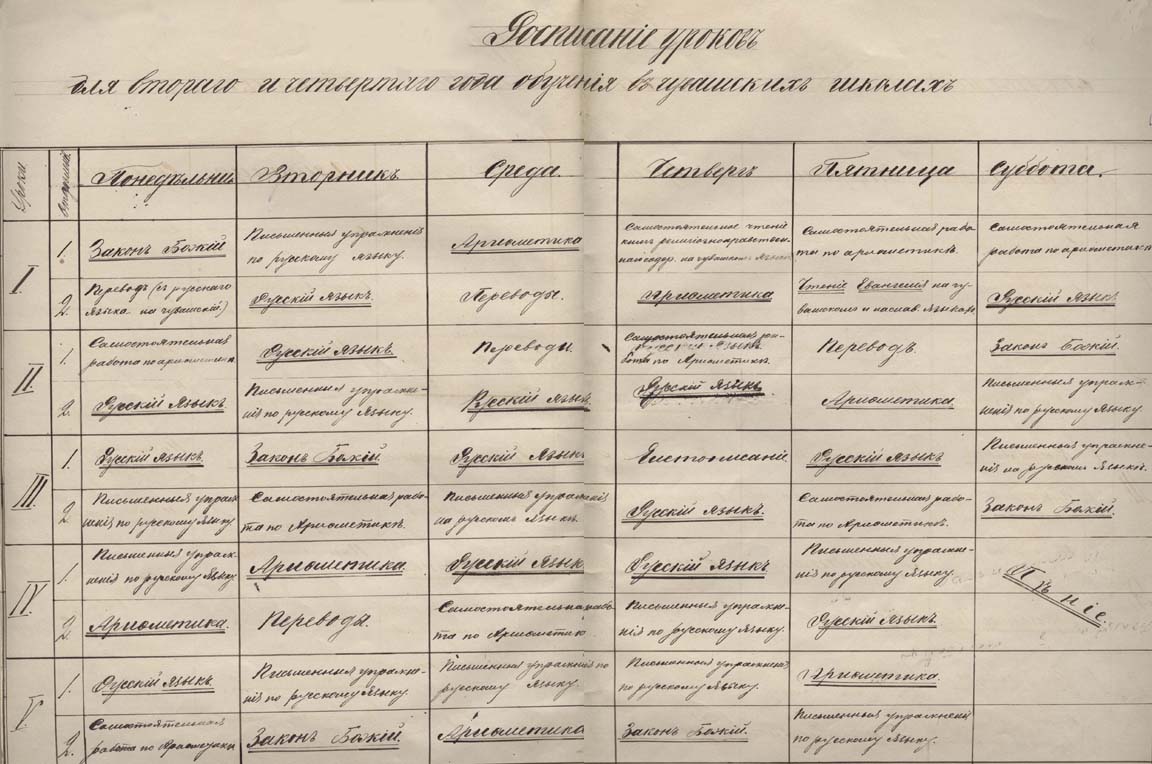 Росписаніе уроковъ
для втораго и четвертаго года обученія въ чувашскихъ школахъ
Уроки
Понедѣльникъ Вторникъ. Среда. Четвергъ Пятница Суббота.
I
1. Законъ Божій
Письменныя упражненія
по русскому языку.
Ариѳметика
Самостоятельное чтеніе
книгъ религіознонравственн.
на чувашск. языкѣ
Самостоятельная рабо-
та по ариѳметикѣ.
Самостоятельная
работа по ариѳметикѣ
2. Переводъ (съ русскаго
языка на чувашскій)
Русскій языкъ.
Переводы.
Ариѳметика
Чтеніе Евангелія на чу-
вашскомъ и славян. языкахъ
Русскій языкъ
II
1. Самостоятельная
работа по ариѳметикѣ
Русскій языкъ
Переводы
Самостоятельная ра-
бота по Ариѳметикѣ.
Переводъ.
Законъ Божій.
2. Русскій языкъ.
Письменныя упражне-
нія по русскому языку.
Русскій языкъ
Русскій языкъ
Ариѳметика.
Письменныя упраж-
ненія по русскому языку.
III
1. Русскій языкъ
Законъ Божій.
Русскій языкъ
Чистописаніе.
Русскій языкъ
Письменныя упражне-
нія на русскомъ языкѣ.
2. Письменныя упраж-
ненія по русскому языку
Самостоятельная рабо-
та по Ариѳметикѣ.
Письменныя упражненія
на русскомъ языкѣ.
Русскій языкъ.
Самостоятельная рабо-
та по Ариѳметикѣ.
Законъ Божій.
IV
1. Письменныя упраж-
ненія по русскому языку
Ариѳметика.
Русскій языкъ
Русскій языкъ
Письменныя упражне-
нія по русскому языку.
Пѣніе.
2. Ариѳметика.
Переводы.
Самостоятельная рабо-
та по Ариѳметик
Письменныя упражне-
нія по русскому языку.
Русскій языкъ.
V
1. Русскій языкъ.
Письменныя упражне-
нія по русскому языку.
Письменныя упражненія по
русскому языку.
Письменныя упражненія
по русскому языку.
Ариѳметика.
2. Самостоятельная
работа по Ариѳметикѣ
Законъ Божій.
Ариѳметика
Законъ Божій.
Письменныя упражненія
по русскому языку.